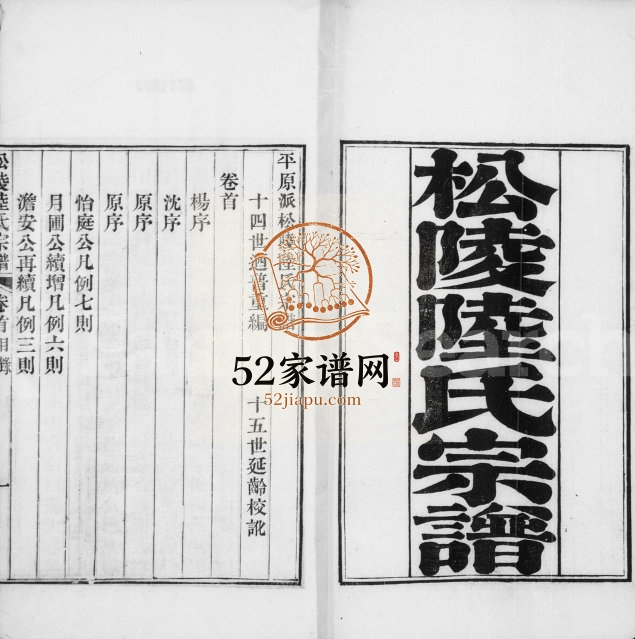 松陵陸氏宗譜
平原派松陵陸氏宗譜
十四世迺普重編
十五世延齡校訛
卷首
楊序
沈序
原序
原序
怡庭公凡例七則
月圃公續增凡例六則
澹安公再續凡例三則
松陵陸氏宗譜 卷首目錄
52家谱网
52jiapu.com